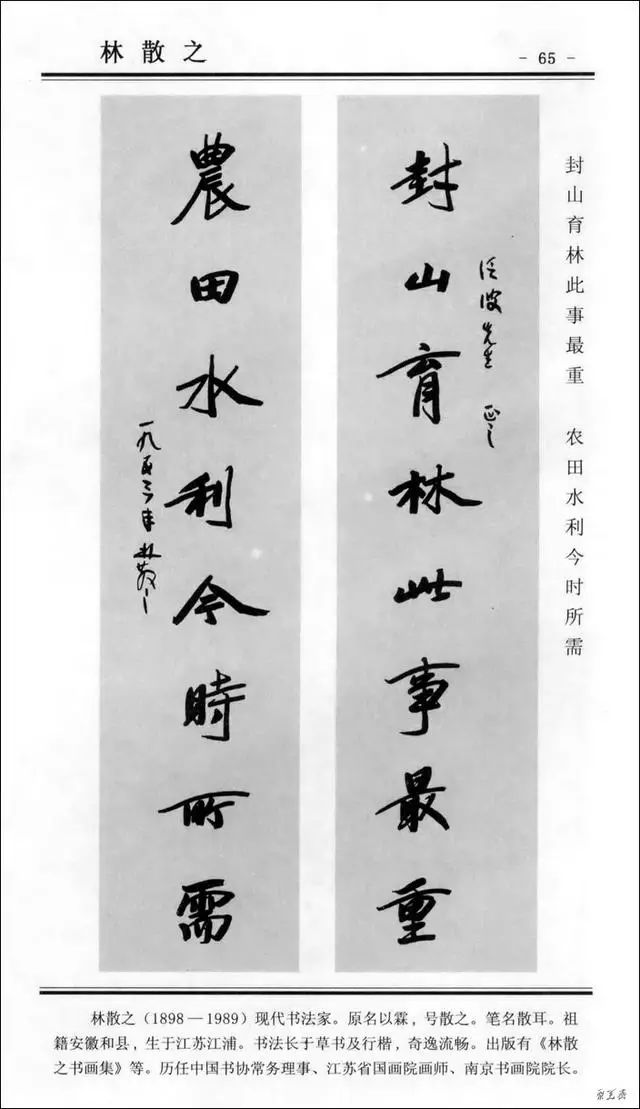 林散之
- 65 -
封山育林此事最重 农田水利今时所需
封山育林此事最重
波先生 正之
農田水利今時所需
一九五三年 林散之
林散之(1898—1989)现代书法家。原名以霖,号散之。笔名散耳。祖
籍安徽和县,生于江苏江浦。书法长于草书及行楷,奇逸流畅。出版有《林散
之书画集》等。历任中国书协常务理事、江苏省国画院画师、南京书画院院长。